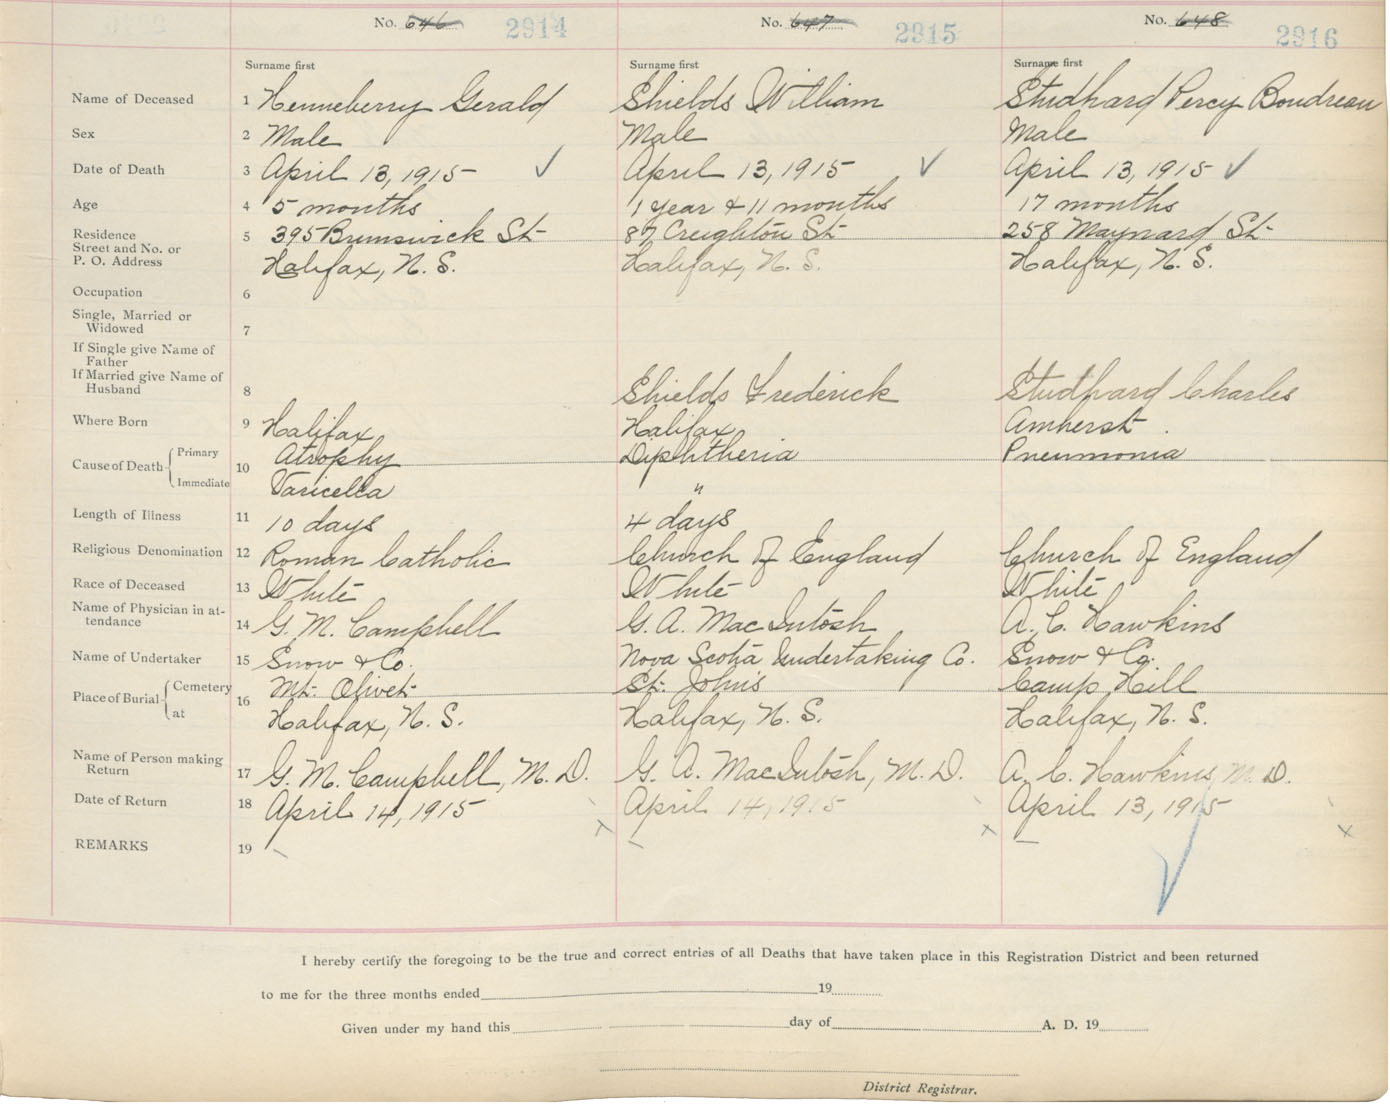 No. 646 2914 No. 647 2915 No. 648 2916
Surname first Surname first Surname first
Name of Deceased 1 Henneberry Gerald Shields William Studhard Percy Boudreau
Sex 2 Male Male Male
Date of Death 3 April 13, 1915 ✓ April 13, 1915 ✓ April 13, 1915 ✓
Age 4 5 months 1 year & 11 months 17 months
Residence
Street and No. or 5 395 Brunswick St- 87 Creighton St- 258 Maynard St-
P. O. Address Halifax, N. S. Halifax, N. S. Halifax, N. S.
Occupation 6
Single, Married or
Widowed 7
If Single give Name of
Father
If Married give Name of
Husband 8 Shields Frederick Studhard Charles
Where Born 9 Halifax Halifax Amherst.
Cause of Death { Primary 10 Atrophy Diphtheria Pneumonia
Immediate Varicella "
Length of Illness 11 10 days 4 days
Religious Denomination 12 Roman Catholic Church of England Church of England
Race of Deceased 13 White White White
Name of Physician in at-
tendance 14 G. M. Campbell G. A. MacIntosh A. C. Hawkins
Name of Undertaker 15 Snow & Co. Nova Scotia Undertaking Co. Snow & Co.
Place of Burial { Cemetery 16 Mt. Olivet St. John's Camp Hill
at Halifax, N. S. Halifax, N. S. Halifax, N. S.
Name of Person making
Return 17 G. M. Campbell, M. D. G. A. MacIntosh, M. D. A. C. Hawkins, M. D.
Date of Return 18 April 14, 1915 April 14, 1915 April 13, 1915
REMARKS 19
I hereby certify the foregoing to be the true and correct entries of all Deaths that have taken place in this Registration District and been returned
to me for the three months ended 19
Given under my hand this day of A. D. 19
District Registrar.